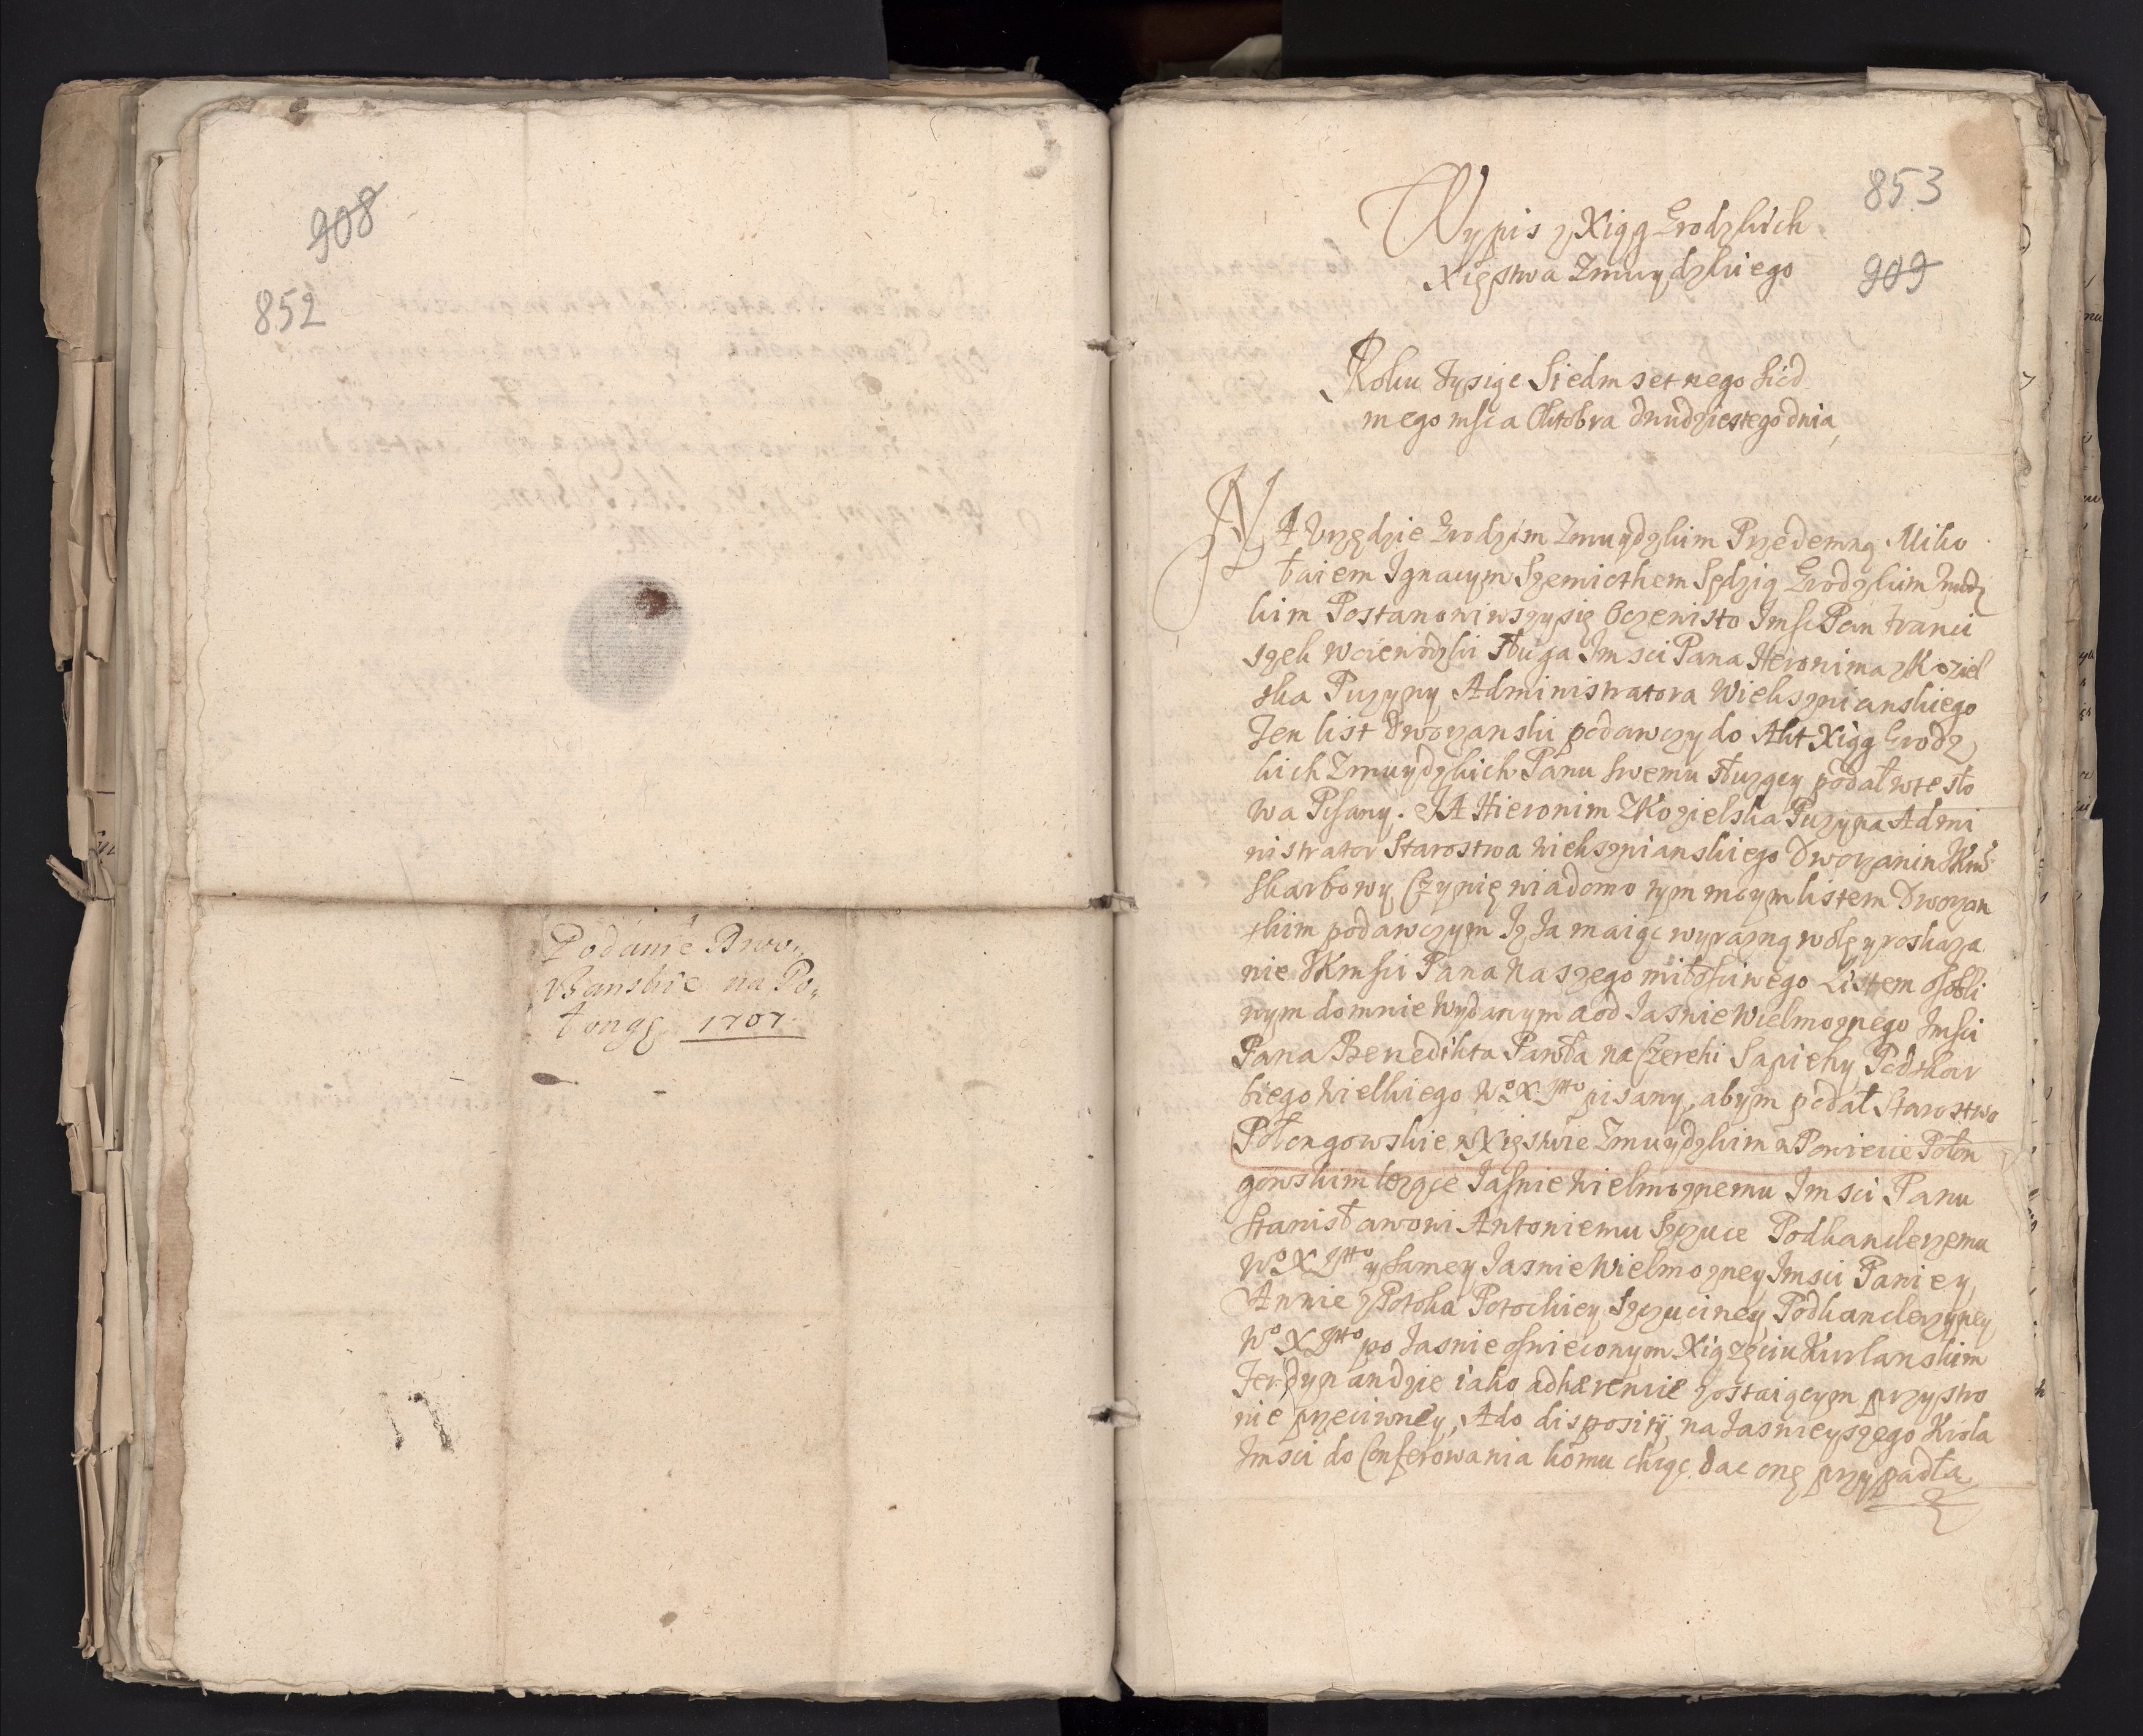 908
852
Podanie Dwo„
Rzanskie na Po„
łongę 1707.
853
909
Wypis z Xiąg Grodzkich
Xięstwa Zmuydzkiego
Roku Tysiąc Siedm setnego Siod
mego msca Oktobra dwudziestego dnia
NA Vrzędzie Grodzkim Zmuydzkim Przedemną Miko
łaiem Ignacym Szemiothem Sędzią Grodzkim Zmudz
kim Postanowiwszy się Oczewisto Imsc Pan Franci
szek Woiewodzki sługa Imsci Pana Heronima z Koziel
ska Puzyny Administratora Wieksznianskiego
Ten list Dworzanski podawczy do Akt Xiąg Grodz
kich Zmuydzkich Panu swemu służący podał w te sło
wa Pisany. JA Hieronim z Kozielska Puzyna Admi
nistrator Starostwa Wiekszniansk​iego Dworzanin JKmsc
skarbowy Czynię wiadomo tym moym listem Dworzan
skim podawczym Iż Ja maiąc wyrazną wolę y roskaza
nie JKmsci Pana Naszego miłosciwego Listem osobli
wym do mnie wydanym a od Jasnie Wielmoznego Jmsci
Pana Benedikta Pawła na Czerehi Sapiehy Podskar
biego Wielkiego Wo X Itto pisany, abym podał Starostwo
Połongowskie w Xięstwie Zmuydzkim w Powiecie Połon
gowskim leżące Jasnie Wielmoznemu Jmsci Panu
Stanisławowi Antoniemu Szczuce Podkanclerzemu
Wo X Itto y samey Jasnie Wielmozney Jmsci Paniey
Annie z Potoka Potockiey Szczuciney Podkanclerzyney
Wo X Itto po Jasnie oswieconym Xiążęciu Kurlanskim
Ferdynandzie iako adhærencie zostaiącym przy stro
nie przeciwney, A do disposity naJasnieyszego Krola
Jmsci do Conferowania komu chcąc dac onę przypadła